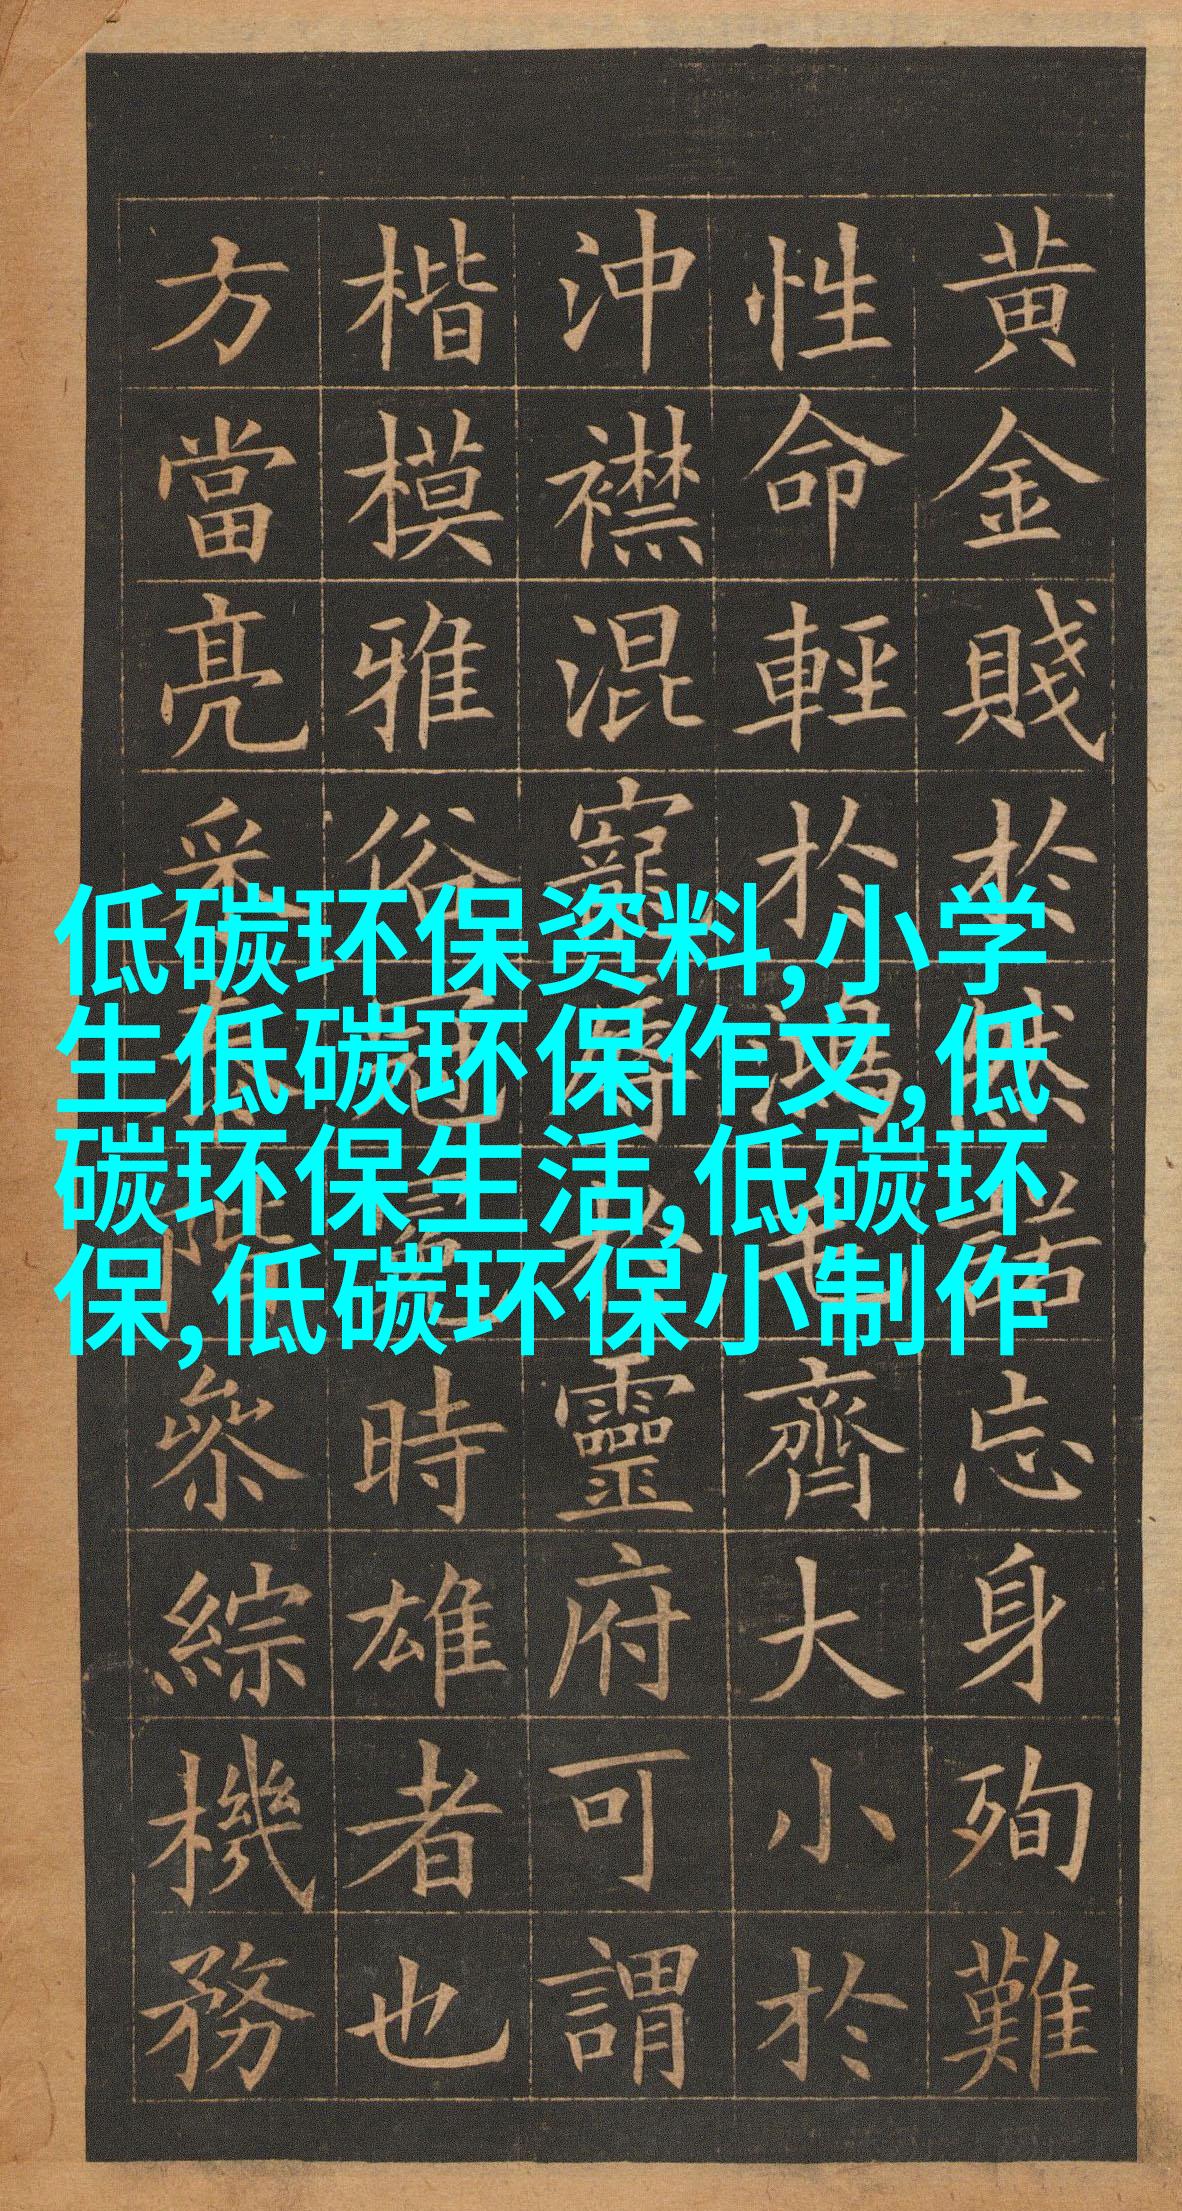 低碳环保资料,小学
生低碳环保作文,低
碳环保生活,低碳环
保,低碳环保小制作
黄金賤於然諾忘身殉難
性命輕於鴻毛齊大小於
沖襟混寵辱於靈府可謂
楷模雅俗冠冕時雄者也
方當亮采泰階參綜機務